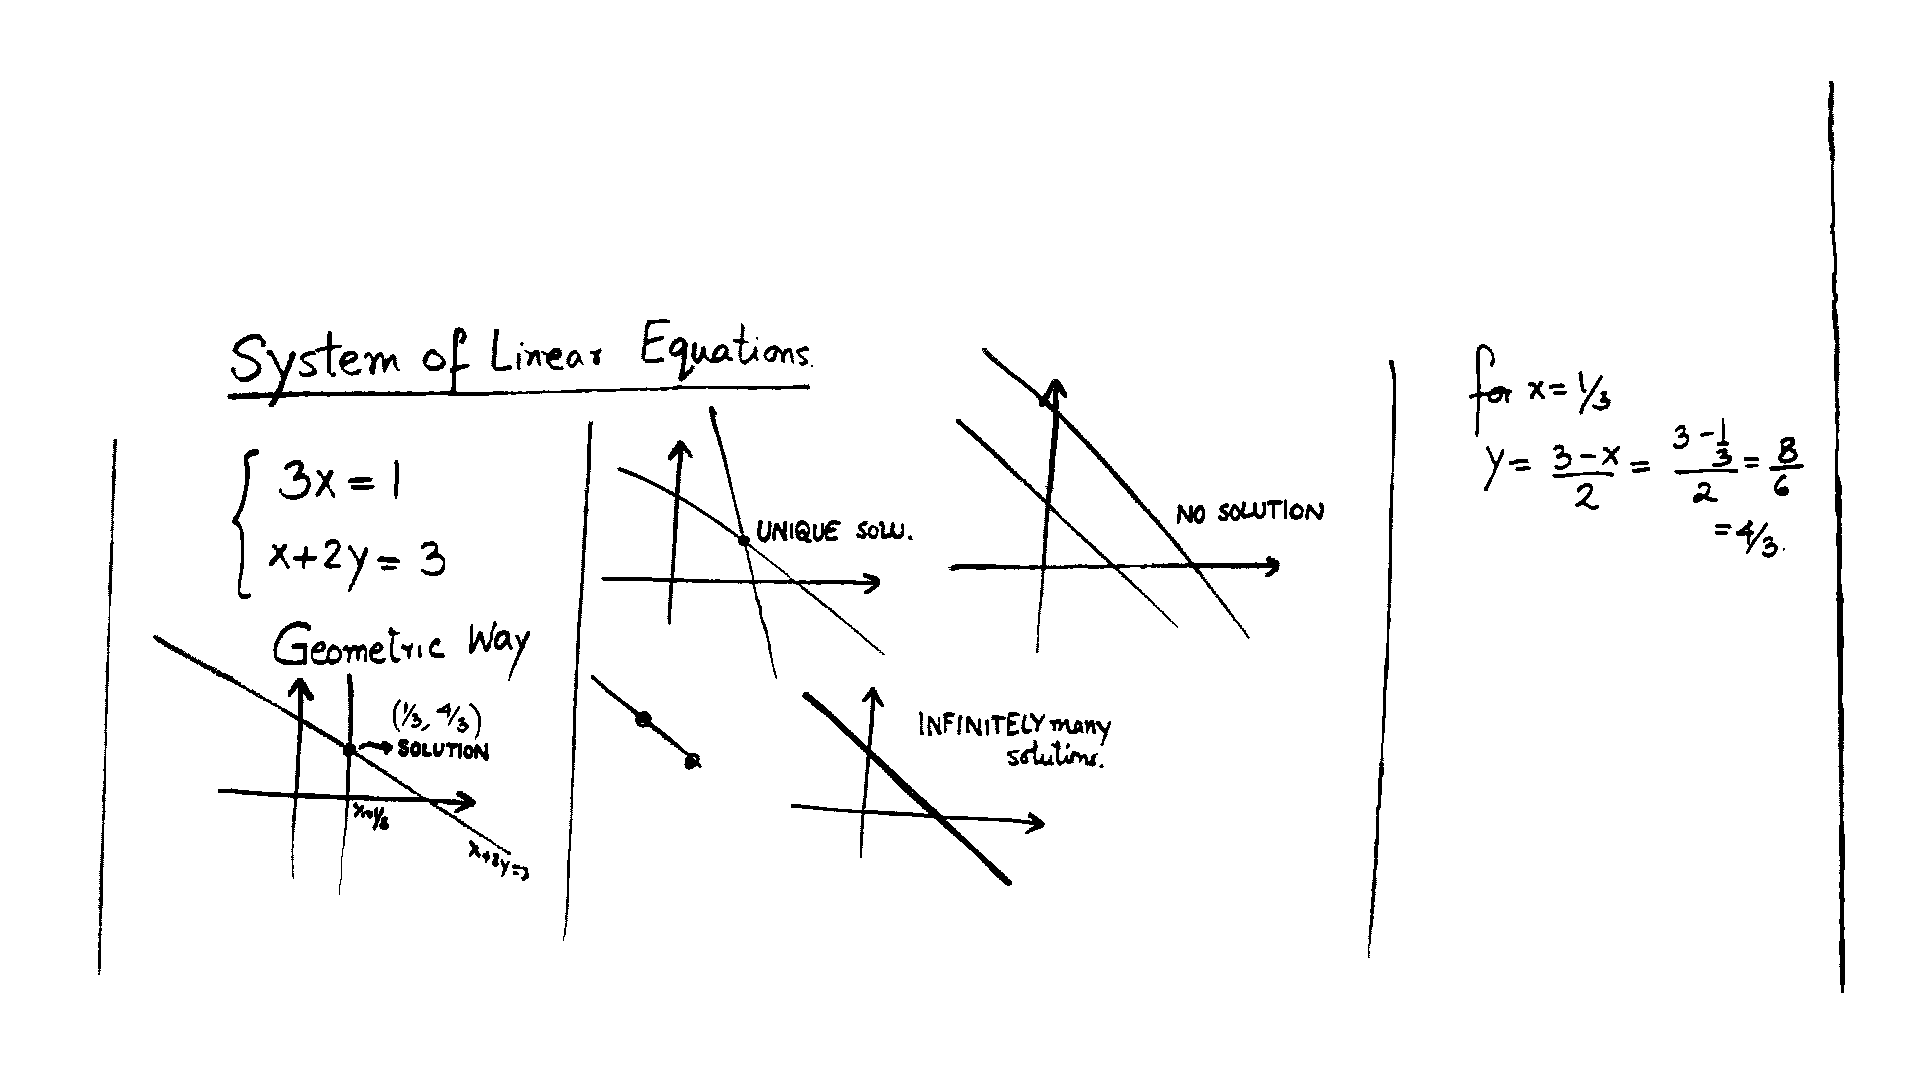 System of Linear Equations.
3x = 1
x+2y = 3
Geometric Way
(1/3, 4/3)
SOLUTION
UNIQUE SOLU.
NO SOLUTION
INFINITELY many
solutions.
for x = 1/3
y = 3-x/2 = 3-1/3/2 = 8/6
= 4/3.